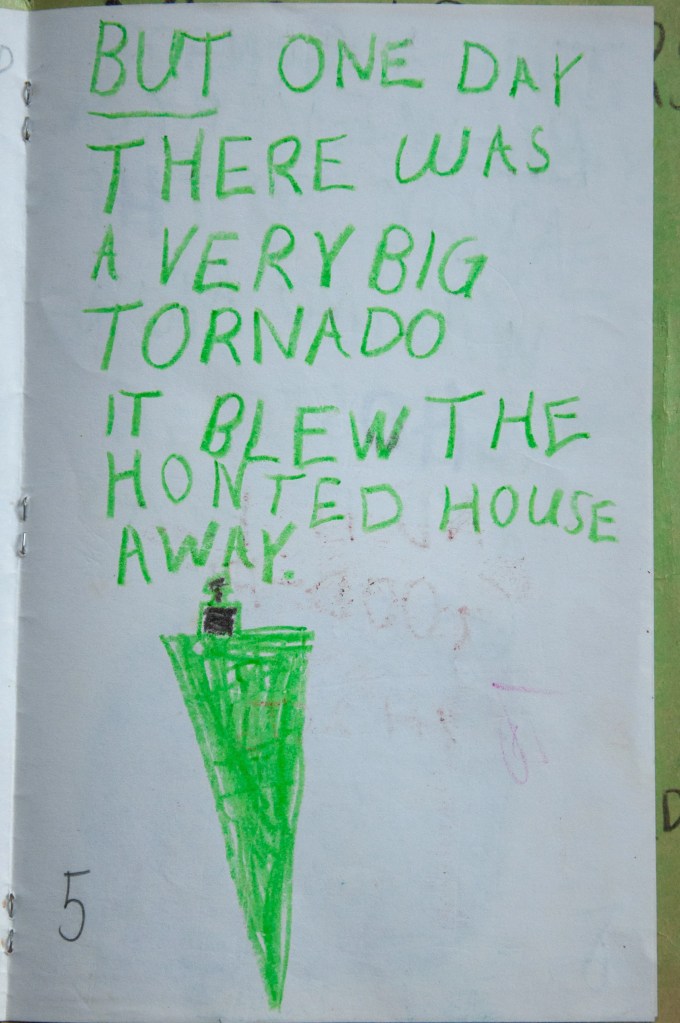 BUT ONE DAY
THERE WAS
A VERY BIG
TORNADO
IT BLEW THE
HONTED HOUSE
AWAY.
5